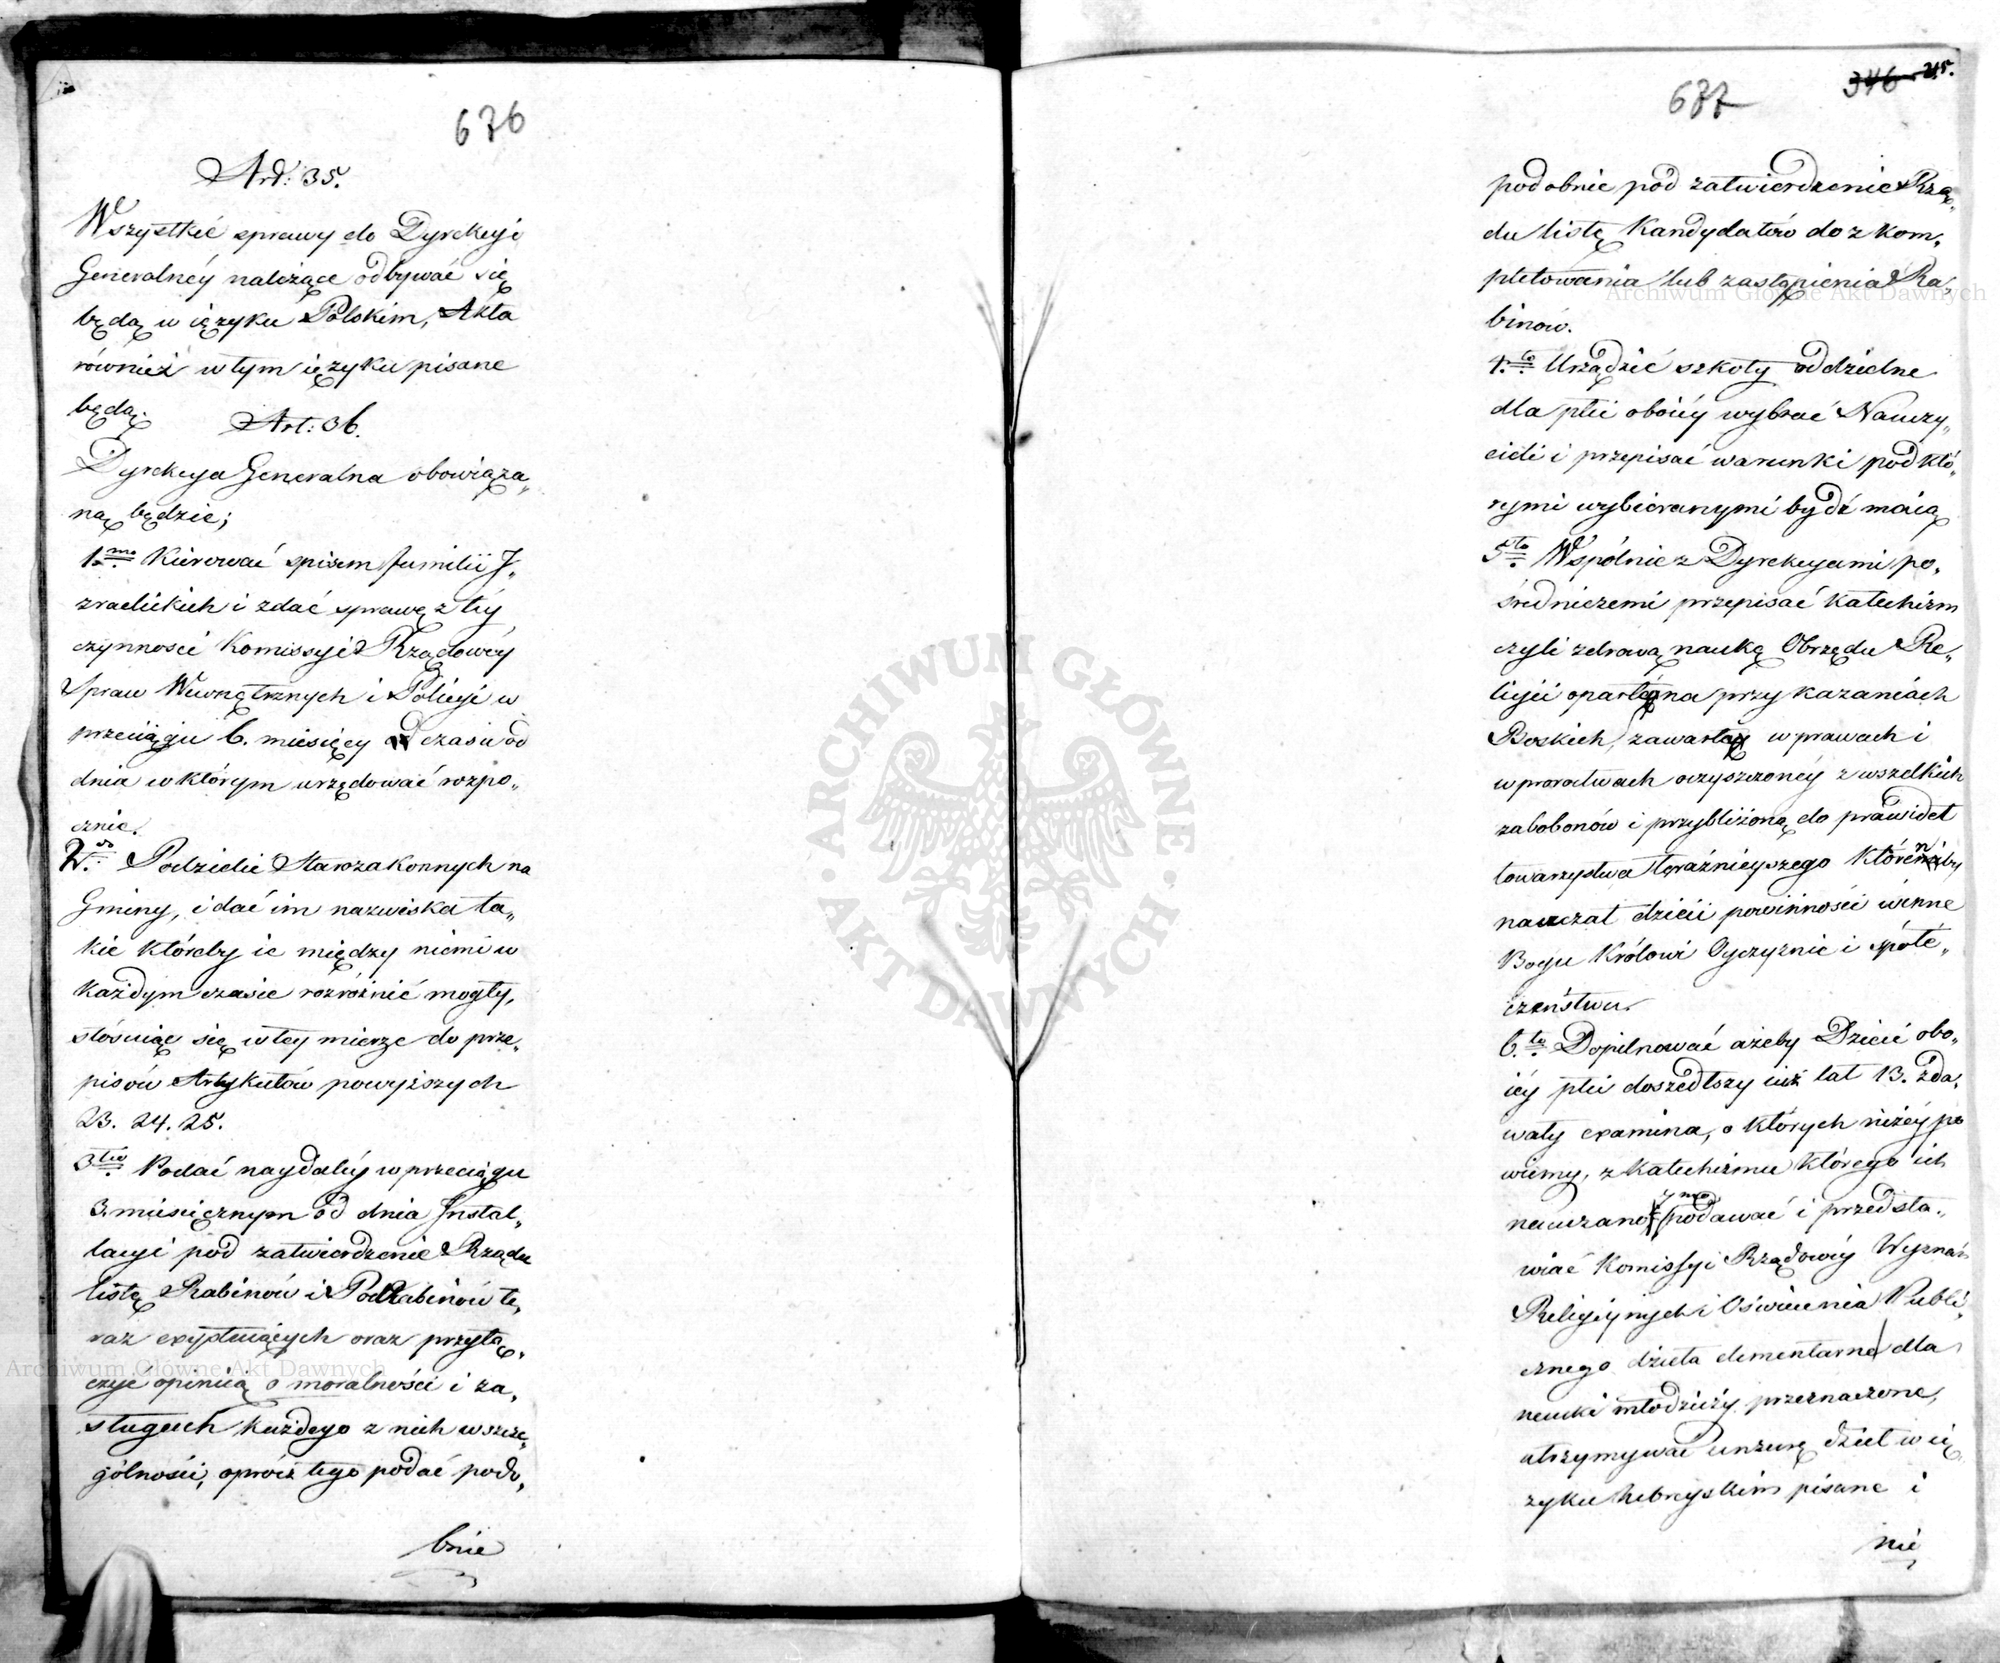 676
Art: 35.
Wszystkie sprawy do Dyrekcyi
Generalnéy należące odbywać się
będą w ięzyku Polskim, Akta
również w tym ięzyku pisane
będą.
Art: 36.
Dyrekcya Generalna obowiąza„
ną będzie;
1.mo Kierować spisem familii J„
zraelickich i zdać sprawę z téy
czynności Komissyi Rządowéy
Spraw Wewnętrznych i Policyi w
przeciągu 6. miesięcy czasu od
dnia w którym urzędować rozpo„
cznie.
2.do Podzielić Starozakonnych na
Gminy, i dać im nazwiska ta„
kie któreby ie między niemi w
każdym czasie rozróżnić mogły,
stósuiąc się w tey mierze do prze„
pisów Artykułów powyższych
23. 24. 25.
3.tio Podać naydaléy w przeciągu
3. miesięcznym od dnia Instal„
lacyi pod zatwierdzenie Rządu
listę Rabinów i PodRabinów te„
raz exystuiących oraz przyłą„
czyć opinią o moralności i za„
sługach każdego z nich w szcze„
gólności, oprócz tego podać podo„
bnie
677
346 215.
podobnie pod zatwierdzenie Rzą„
du listę Kandydatów do zkom„
pletowania lub zastąpienia Ra„
binów.
4.to Urządzić szkoły oddzielne
dla płci oboiéy wybrać Nauczy„
cieli i przepisać warunki pod któ„
rymi wybieranymi bydź maią
5.to Wspólnie z Dyrekcyami po„
średniczemi przepisać Katechizm
czyli zdrową naukę Obrzędu Re„
ligii opartą na przykazaniach
Boskich, zawartą w prawach i
w proroctwach oczyszczonéy z wszelkich
zabobonów i przybliżoną do prawideł
towarzystwa teraźnieyszego
nauczał dzieci powinności winne
Bogu Królowi Oyczyznie i społe„
czeństwu.
6.to Dopilnować ażeby Dzieci obo„
iéy płci doszedłszy iuż lat 13. zda„
wały examina, o których niżéy po
wiemy, z Katechizmu którego ich
nauczano 7mo podawać i przedsta„
wiać Komissyi Rządowéy Wyznań
Religiynych i Oświecenia Publi„
cznego dzieła elementarne dla
nauki młodzieży przeznaczone,
utrzymywać cenzurę dzieł w ię
zyku hebrayskim pisane i
nie
Archiwum Główne Akt Dawnych
Archiwum Główne Akt Dawnych
ARCHIWUM GŁÓWNE · AKT DAWNYCH ·